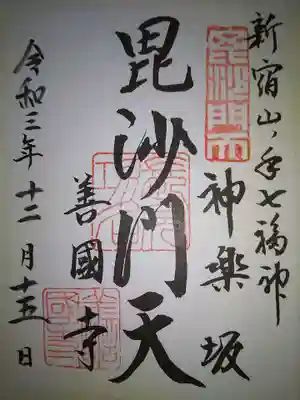 新宿山ノ手七福神
神楽坂
毘沙門天
毘沙門天
善國寺
令和三年十二月十五日